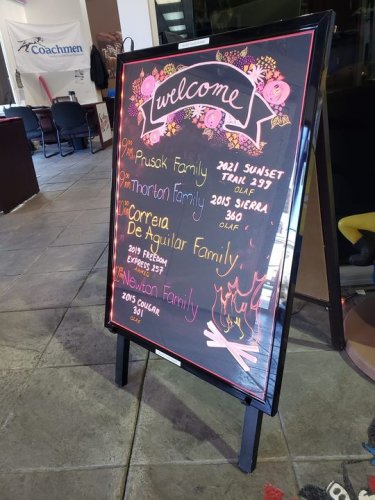 Coachmen
welcome
Prusak Family
2021 SUNSET
TRAIL 299
OLAF
Thorton Family
2015 SIERRA
360
OLAF
Correia
De Aguilar Family
2019 FREEDOM
EXPRESS 257
Newton Family
2015 COUGAR
301
OLAF